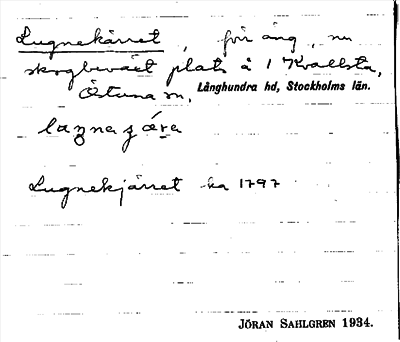 Lugnekärret, förr äng, nu
skogbeväxt plats å 1 Kvallsta,
Östuna sn, Långhundra hd, Stockholms län.
Lugnekjärret ha 1797
JÖRAN SAHLGREN 1934.